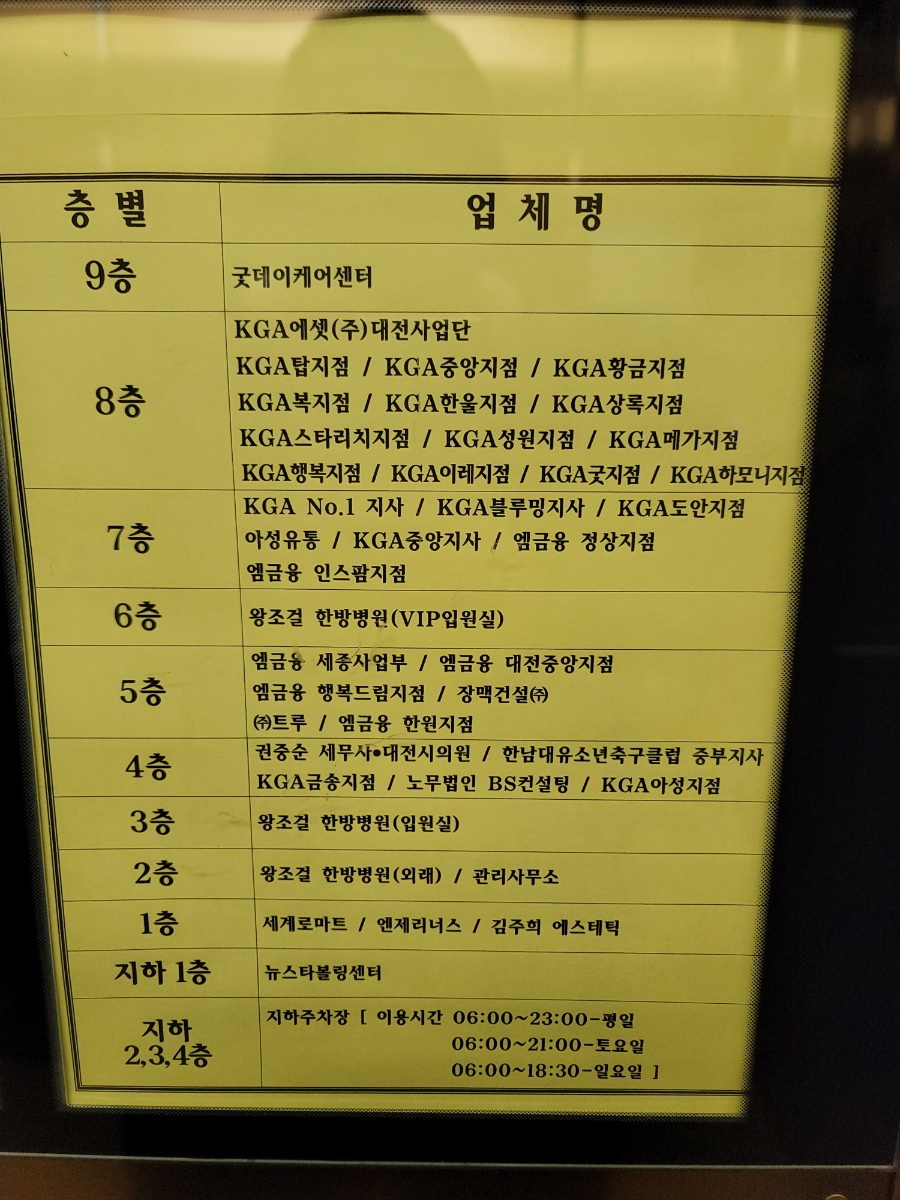 층 별 업 체 명
9층 굿데이케어센터
8층
KGA에셋(주)대전사업단
KGA탑지점 / KGA중앙지점 / KGA황금지점
KGA복지점 / KGA한울지점 / KGA상록지점
KGA스타리치지점 / KGA성원지점 / KGA메가지점
KGA행복지점 / KGA이레지점 / KGA굿지점 / KGA하모니지점
7층
KGA No.1 지사 / KGA블루밍지사 / KGA도안지점
아성유통 / KGA중앙지사 / 엠금융 정상지점
엠금융 인스팜지점
6층 왕조걸 한방병원(VIP입원실)
5층
엠금융 세종사업부 / 엠금융 대전중앙지점
엠금융 행복드림지점 / 장맥건설㈜
㈜트루 / 엠금융 한원지점
4층
권중순 세무사•대전시의원 / 한남대유소년축구클럽 중부지사
KGA금송지점 / 노무법인 BS컨설팅 / KGA아성지점
3층 왕조걸 한방병원(입원실)
2층 왕조걸 한방병원(외래) / 관리사무소
1층 세계로마트 / 엔제리너스 / 김주희 에스테틱
지하 1층 뉴스타볼링센터
지하
2,3,4층
지하주차장 [ 이용시간 06:00~23:00-평일
06:00~21:00-토요일
06:00~18:30-일요일 ]